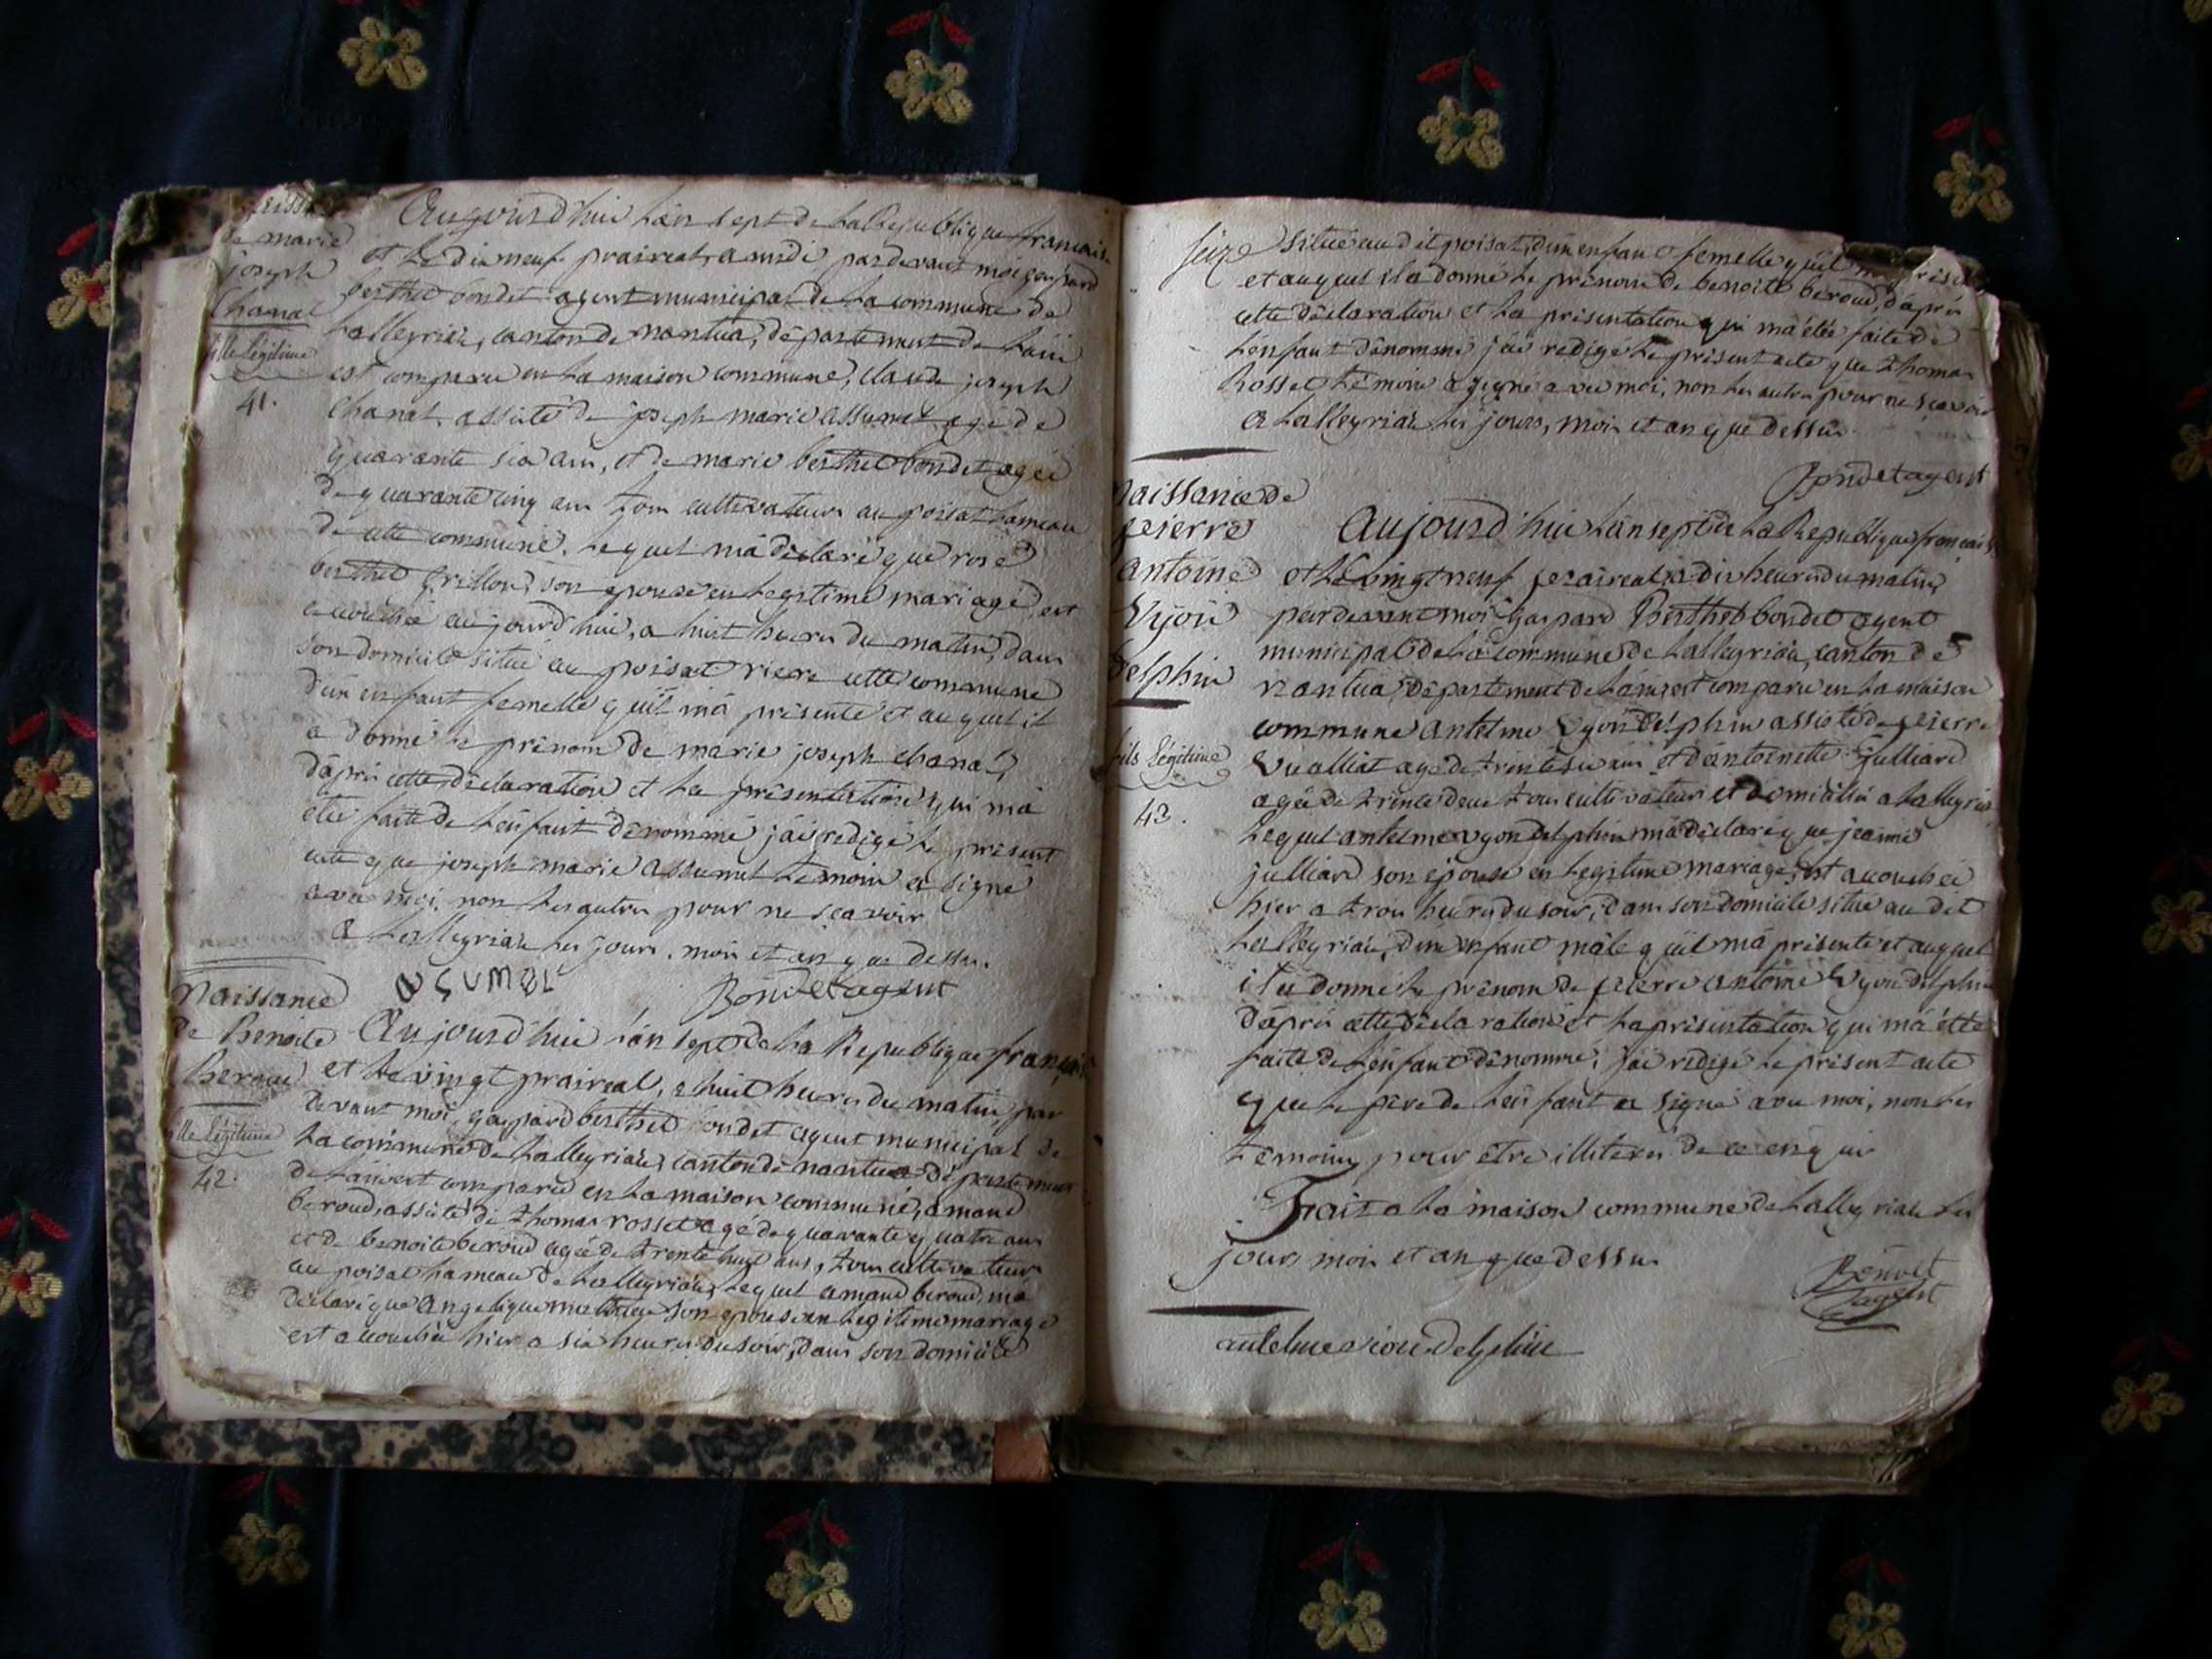 de marie
joseph
Chanal
fille légitime
41.
Aujourd'hui l'an sept de la Republique francaise
et le dix neuf praireal, a midi pardevant moi gaspard
berthet bondet agent municipal de la commune de
Lalleyriat, canton de nantua, département de l'ain
est comparu en la maison commune, claude joseph
Chanal, assisté de joseph marie assumel agé de
quarante six ans, et de marie berthet bondet agée
de quarante cinq ans tous cultivateurs au poizat hameau
de cette commune. Lequel m'a déclaré que rose
berthet grillon, son epouse en legitime mariage, est
accouchée aujourd'hui, a huit heures du matin, dans
son domicile situé au poisat riere cette commune
d'un enfant femelle qu'il m'a présenté et auquel il
a donné le prénom de marie joseph chanal,
d'après cette déclaration et la présentation qui m'a
étée faite de l'enfant dénommé j'ai redigé le présent
acte que joseph marie assumel témoin a signé
avec moi, non les autres pour ne scavoir
a Lalleyriat les jours, mois et an que dessus.
Bondet agent
naissance
de Benoite
Beroud
fille légitime
42.
Aujourd'hui l'an sept de la Republique française
et le vingt praireal, a huit heures du matin, par
devant moi, gaspard berthet bondet agent municipal de
la commune de Lalleyriat, canton de nantua département
de l'ain est comparu en la maison commune, amand
beroud, assisté de thomas rosset agé de quarante quatre ans
et de benoite beroud agée de trente huit ans, tous cultivateurs
au poisat hameau de Lalleyriat, lequel amand beroud, m'a
déclaré que angelique son epouse en legitime mariage
est accouchée hier a six heures du soir, dans son domicile
seize
situé au dit poisat, d'un enfant femelle qu'il
et auquel il a donné le prénom de benoite beroud, d'après
cette déclaration et la présentation qui m'a étée faite de
l'enfant dénommé j'ai redigé le présent acte que thomas
Rosset témoin a signé avec moi, non les autres pour ne scavoir
a Lalleyriat les jours, mois et an que dessus
Bondet agent
naissance de
pierre
antoine
Vyon
delphin
fils légitime
43.
Aujourd'hui l'an sept de la Republique francaise
et le vingt neuf praireal, a dix heures du matin,
pardevant moi gaspard Berthet bondet agent
municipal de la commune de Lalleyriat, canton de
nantua, département de l'ain est comparu en la maison
commune antelme Vyon Delphin assisté de pierre
Vuailliat agé de trente six ans et d'antoinette julliard
agée de trente deux tous cultivateurs et domiciliés a Lalleyriat
Lequel antelme vyon delphin m'a déclaré que jeanne
julliard son epouse en legitime mariage, est accouchée
hier a trois heures du soir, dans son domicile situé au dit
Lalleyriat, d'un enfant mâle qu'il m'a présenté et auquel
il a donné le prénom de pierre antoine Vyon delphin
d'après cette déclaration et la présentation qui m'a étée
faite de l'enfant dénommé, j'ai redigé le présent acte
que le père de l'enfant a signé avec moi, non les
témoins pour etre illiterés de ce enquis
Fait a la maison commune de Lalleyriat les
jours mois et an que dessus
Bondet
agent
antelme vion delphin